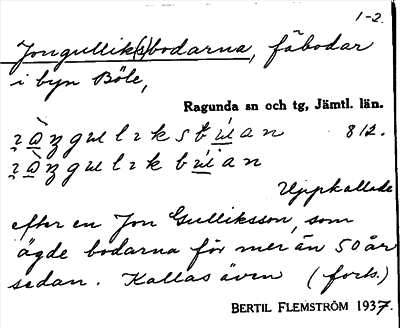 1-2.
Jongullik(s)bodarna, fäbodar
i byn Böle,
Ragunda sn och tg, Jämtl. län.
812.
Uppkallade
efter en Jon Gulliksson, som
ägde bodarna för mer än 50 år
sedan. Kallas även (forts.)
BERTIL FLEMSTRÖM 1937.